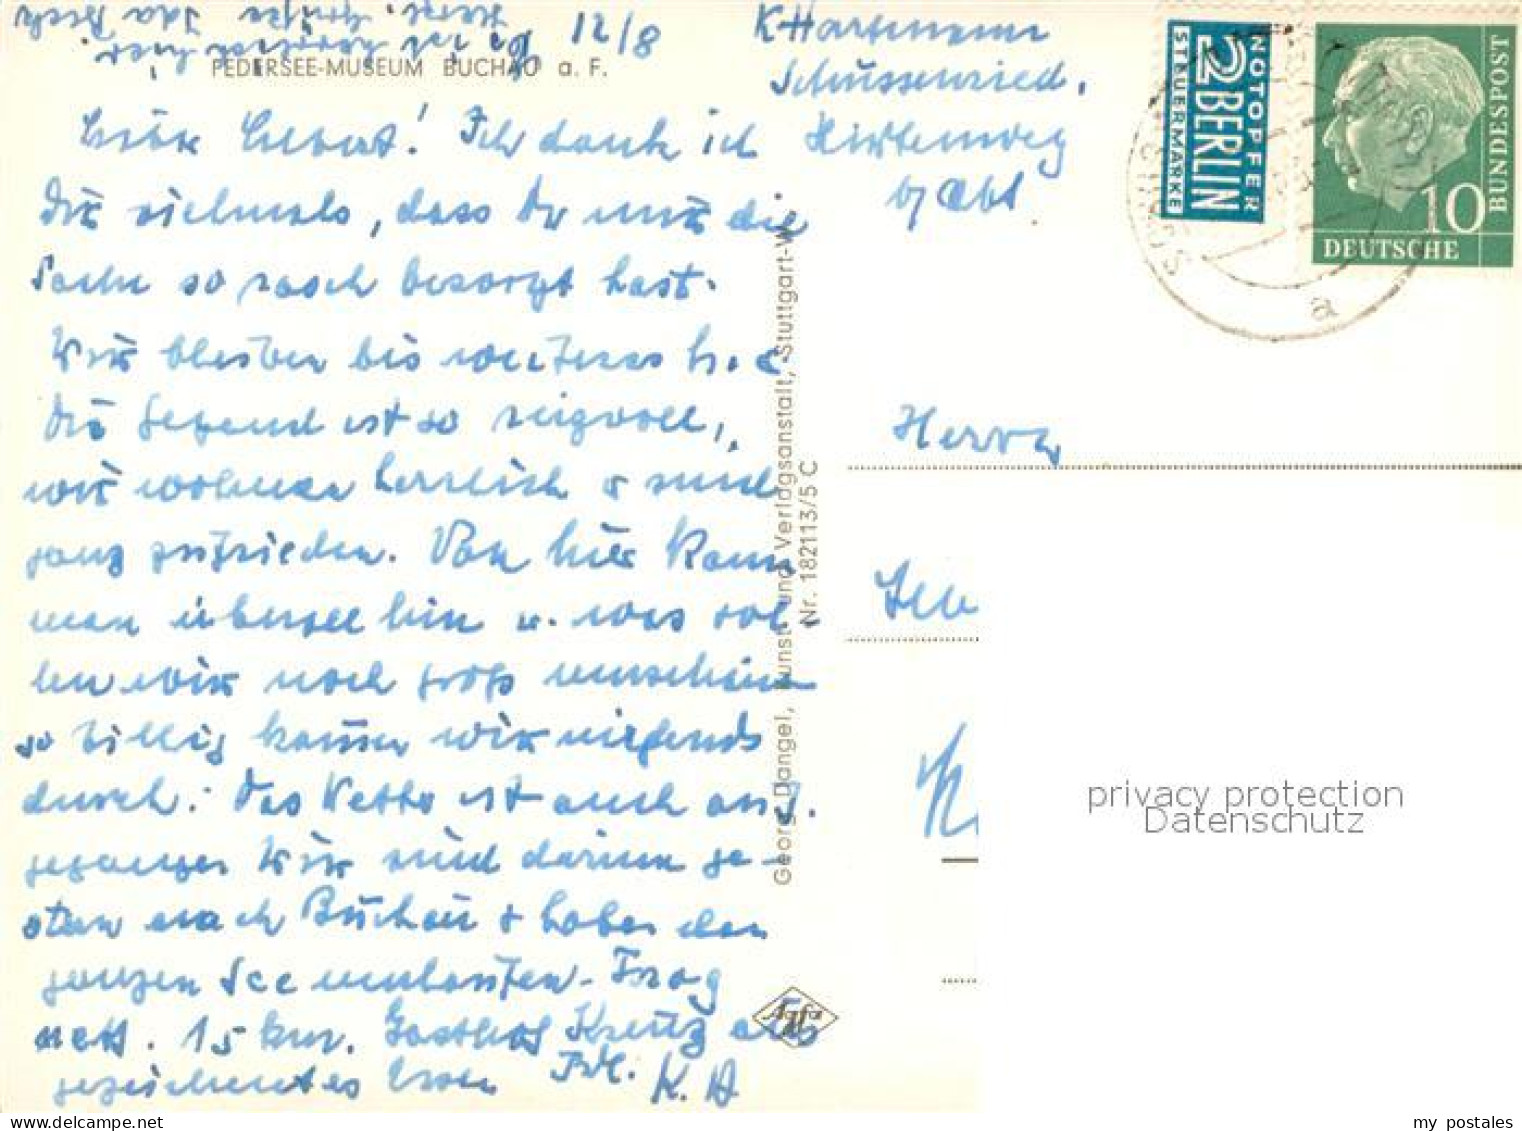 12/8
FEDERSEE-MUSEUM BUCHAU a. F.
K Hartmann
Schussenried.
Hirtenweg
b/ Abt.
Ich danke ich
Dir vielmals, dass Du mir die
Sache so rasch besorgt hast.
Wir bleiben bis weiteres h.
Die Gegend ist so reizvoll,
wir wohnen herrlich u sind
ganz zufrieden. Von hier kann
man überall hin u. was sol-
len wir noch groß
so billig kommen wir nirgends
durch. Das Wetter ist auch ans.
gegangen Wir sind darum ge-
stern nach Buchau + haben den
ganzen See umlaufen. Frag
nett. 15 km. Gasthof Kreuz aus
gezeichnetes Essen K. H
Georg Dangel, Kunst- und Verlagsanstalt, Stuttgart-W
Nr. 182113/5 C
Agfa
NOTOPFER
2 BERLIN
STEUERMARKE
10
DEUTSCHE
BUNDESPOST
a
Herrn
privacy protection
Datenschutz
my postales